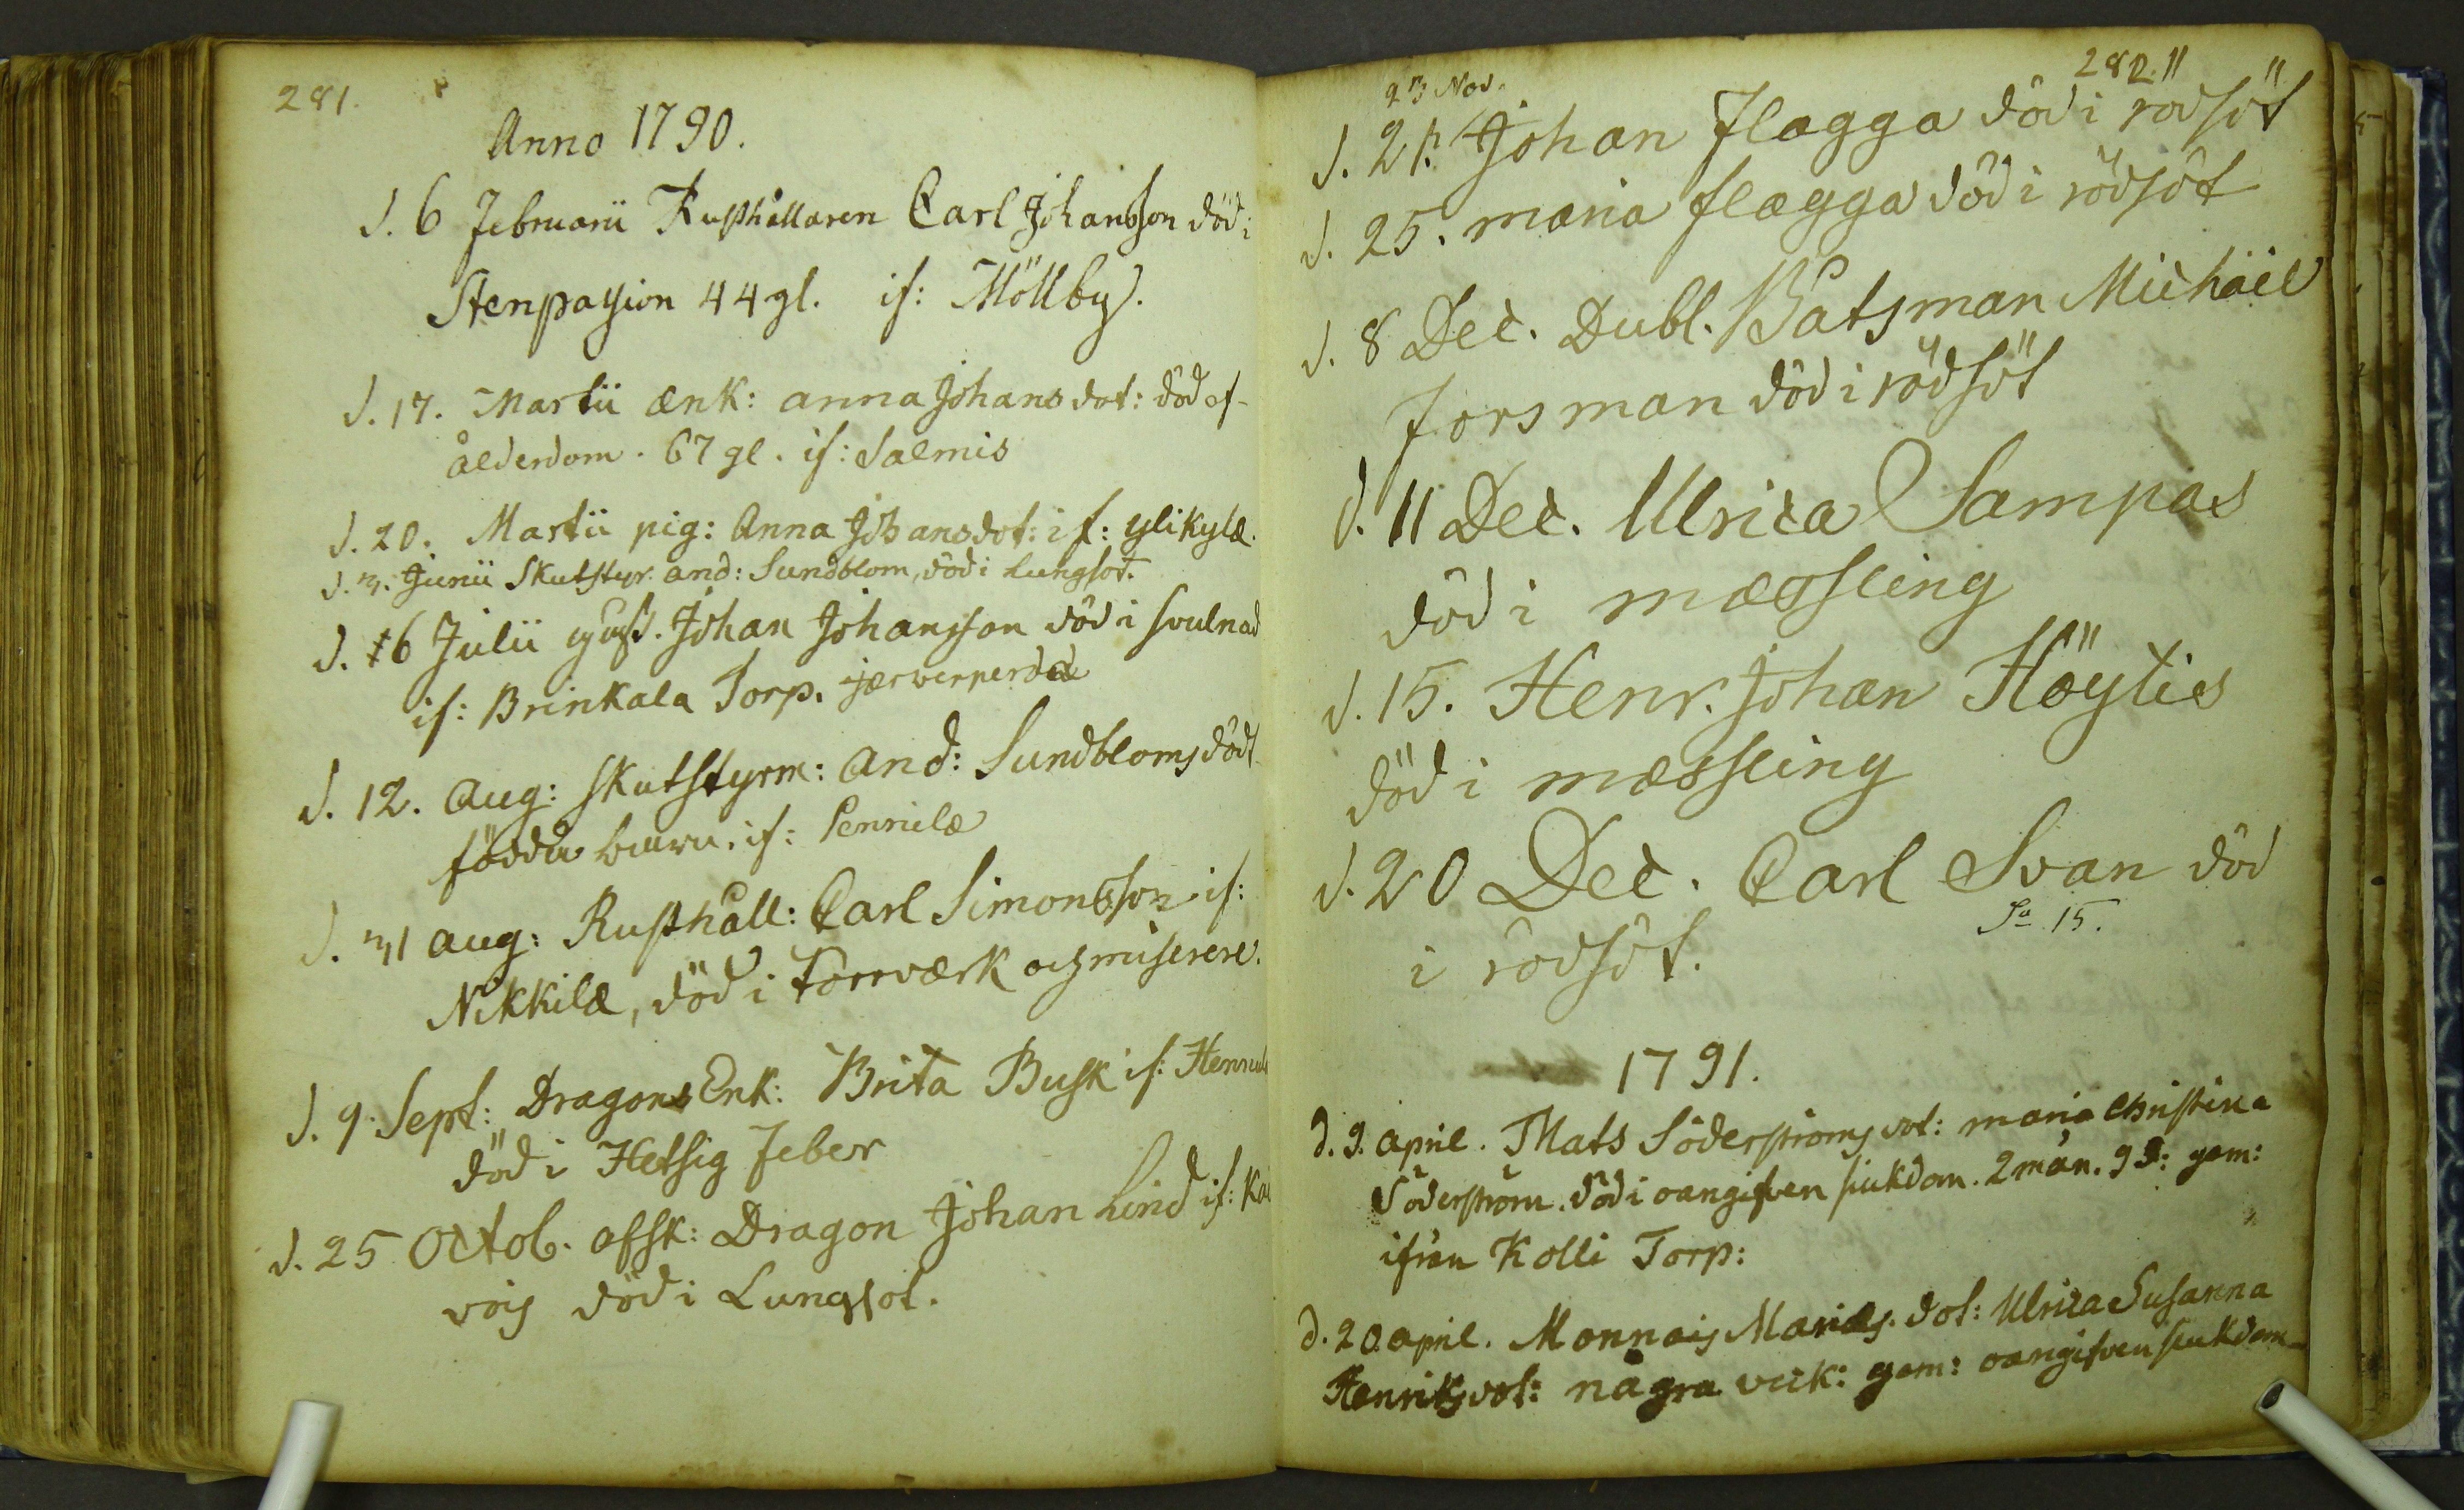 281.
Anno 1790.
d. 6 Februarii Rusthållaren Carl Johansson död i
Stenpassion 44 gl. if: Möllby.
d. 17. Martii ænk: anna Johansdot: död af
ålderdom. 67 gl. if: Salmis
d. 20. Martii pig: Anna Johansdot: if: ylikylæ.
d. 3. Junii Skutstyr. and: Sundblom, död i Lungsot.
d. 16 Julii Johan Johansson död i svulnad
if: Brinkala Torp.
d. 12. aug: Skutstyrm: and: Sundbloms dödt
födda barn. if: Pennilæ
d. 31 aug: Rusthåll: Carl Simonsson if:
Nikkilæ, död i Torrværk och miserere.
d. 9. Sept: Dragons Enk: Brita Busk if:
död i Hetsig Feber
d. 25 Octob. afsk: Dragon Johan Lind if:
död i Lungsot.
282.
23 Nov.
d. 21. Johan Flagga död i rödsot
d. 25. maria flagga död i rödsot
d. 8 Dec. Dubl. Båtsman Michäel
Forsman död i rödsot
d. 11 Dec. Ulrica Sampas
död i mæssling
d. 15. Henr. Johan Höylis
död i mæssling
d. 20 Dec. Carl Svan död
i rödsot.
Sa 15.
1791.
d. 9. april. Mats Söderströms dot: maria Christina
Söderström. död i oangifven siukdom. 2 mån. 9 D: gam:
ifrån Kolli Torp:
d. 20. april. Monnais Mariæs. dot: Ulrica Susanna
Henriksdot: några veck: gam: oangifven siukdom